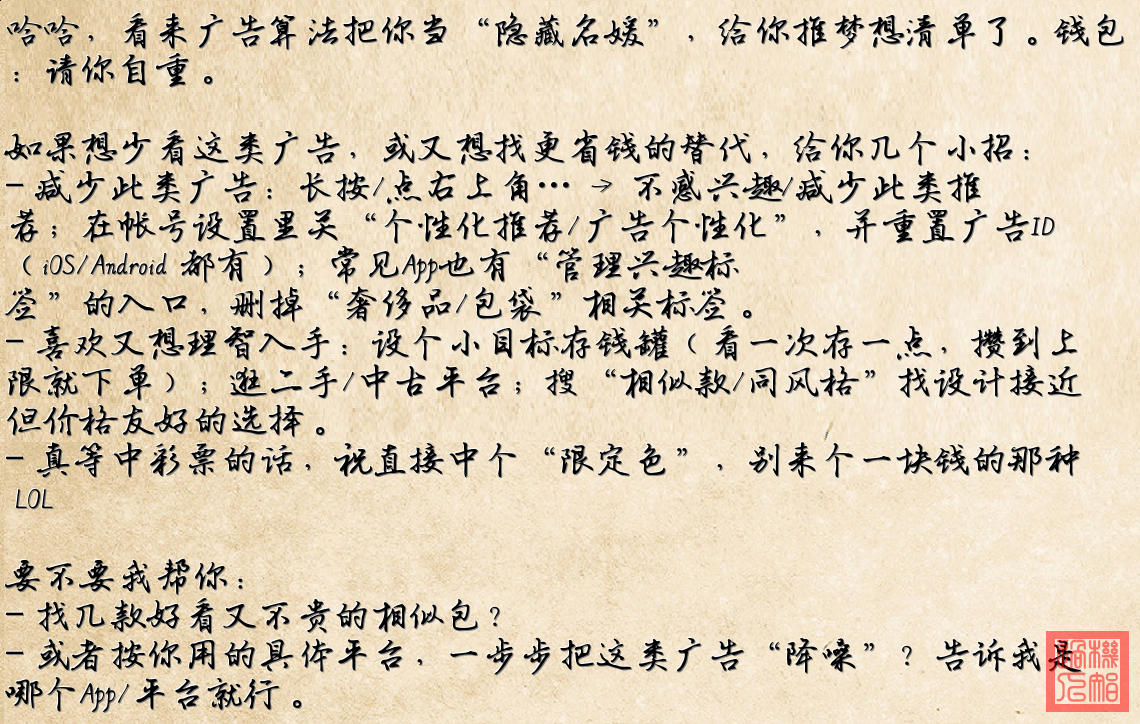 哈哈，看来广告算法把你当“隐藏名媛”，给你推梦想清单了。钱包
：请你自重。
如果想少看这类广告，或又想找更省钱的替代，给你几个小招：
- 减少此类广告：长按/点右上角… → 不感兴趣/减少此类推
荐；在帐号设置里关“个性化推荐/广告个性化”，并重置广告ID
（iOS/Android 都有）；常见App也有“管理兴趣标
签”的入口，删掉“奢侈品/包袋”相关标签。
- 喜欢又想理智入手：设个小目标存钱罐（看一次存一点，攒到上
限就下单）；逛二手/中古平台；搜“相似款/同风格”找设计接近
但价格友好的选择。
- 真等中彩票的话，祝直接中个“限定色”，别来个一块钱的那种
LOL
要不要我帮你：
- 找几款好看又不贵的相似包？
- 或者按你用的具体平台，一步步把这类广告“降噪”？告诉我是
哪个App/平台就行。